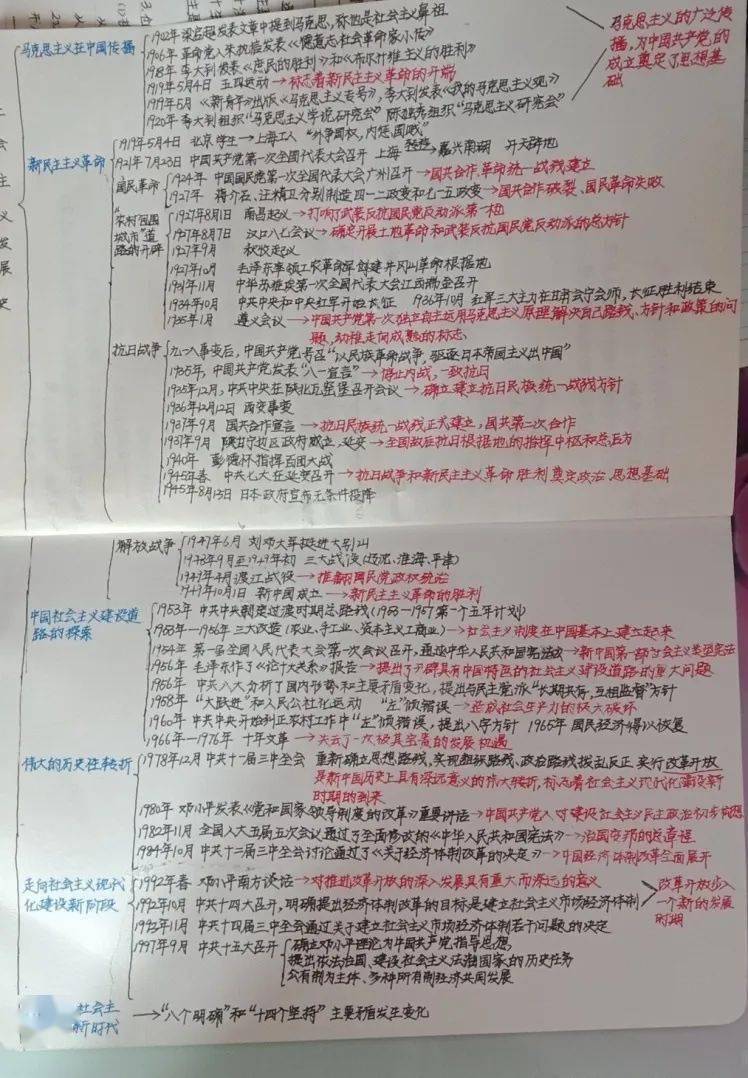 马克思主义在中国传播
1902年 梁启超发表文章中提到马克思,称他是社会主义鼻祖
1906年 革命党人朱执信发表《德意志社会革命家小传》
1918年 李大钊发表《庶民的胜利》和《布尔什维主义的胜利》
1919年5月4日 五四运动→标志着新民主主义革命的开端
1919年5月 《新青年》出版《马克思主义专号》,李大钊发表《我的马克思主义观》
1920年 李大钊组织"马克思主义学说研究会" 陈独秀组织"马克思主义研究会"
马克思主义的广泛传
播,为中国共产党的
成立奠定了思想基
础
新民主主义革命
1919年5月4日 北京学生→上海工人 "外争国权,内惩国贼"
1921年7月23日 中国共产党第一次全国代表大会召开 上海→嘉兴南湖 开天辟地
国民革命
1924年 中国国民党第一次全国代表大会广州召开→国共合作,革命统一战线建立
1927年 蒋介石、汪精卫分别制造四一二政变和七一五政变→国共合作破裂、国民革命失败
"农村包围
城市"道
路的开辟
1927年8月1日 南昌起义→打响了武装反抗国民党反动派第一枪
1927年8月7日 汉口八七会议→确定开展土地革命和武装反抗国民党反动派的总方针
1927年9月 秋收起义
1927年10月 毛泽东率领工农革命军创建井冈山革命根据地
1931年11月 中华苏维埃第一次全国代表大会江西瑞金召开
1934年10月 中共中央和中央红军开始长征 1936年10月 红军三大主力在甘肃会宁会师,长征胜利结束
1935年1月 遵义会议→中国共产党第一次独立自主运用马克思主义原理解决自己路线、方针和政策的问
题,幼稚走向成熟的标志
抗日战争
九一八事变后,中国共产党号召"以民族革命战争,驱逐日本帝国主义出中国"
1935年,中国共产党发表"八一宣言"→停止内战,一致抗日
1935年12月,中共中央在陕北瓦窑堡召开会议→确立建立抗日民族统一战线方针
1936年12月12日 西安事变
1937年9月 国共合作宣言→抗日民族统一战线正式建立,国共第二次合作
1937年9月 陕甘宁边区政府成立,延安→全国敌后抗日根据地的指挥中枢和总后方
1940年 彭德怀指挥百团大战
1945年春 中共七大在延安召开→抗日战争和新民主主义革命胜利奠定政治 思想基础
1945年8月15日 日本政府宣布无条件投降
解放战争
1947年6月 刘邓大军挺进大别山
1948年9月至1949年初 三大战役(辽沈、淮海、平津)
1949年4月渡江战役→推翻国民党政权统治
1949年10月1日 新中国成立→新民主主义革命的胜利
中国社会主义建设道
路的探索
1953年 中共中央制定过渡时期总路线(1953—1957第一个五年计划)
1953年—1956年 三大改造(农业、手工业、资本主义工商业)→社会主义制度在中国基本上建立起来
1954年 第一届全国人民代表大会第一次会议召开,通过中华人民共和国宪法→新中国第一部社会主义类型宪法
1956年 毛泽东作了《论十大关系》报告→提出了开辟具有中国特色的社会主义建设道路的重大问题
1956年 中共八大分析了国内形势和主要矛盾变化,提出与民主党派"长期共存,互相监督"方针
1958年 "大跃进"和人民公社化运动 "左"倾错误→造成社会生产力的极大破坏
1960年 中共中央开始纠正农村工作中"左"倾错误,提出八字方针 1965年 国民经济得以恢复
1966年—1976年 十年文革→失去了一次极其宝贵的发展机遇
伟大的历史性转折
1978年12月 中共十一届三中全会 重新确立思想路线,实现组织路线、政治路线拨乱反正 实行改革开放
是新中国历史上具有深远意义的伟大转折,标志着社会主义现代化建设新
时期的到来
1980年 邓小平发表《党和国家领导制度的改革》重要讲话→中国共产党人对建设社会主义民主政治初步构想
1982年11月 全国人大五届五次会议通过了全面修改的《中华人民共和国宪法》→治国安邦的总章程
1984年10月 中共十二届三中全会讨论通过了《关于经济体制改革的决定》→中国经济体制改革全面展开
走向社会主义现代
化建设新阶段
1992年春 邓小平南方谈话→对推进改革开放的深入发展具有重大而深远的意义
1992年10月 中共十四大召开,明确提出经济体制改革的目标是建立社会主义市场经济体制
1993年11月 中共十四届三中全会通过关于建立社会主义市场经济体制若干问题的决定
改革开放步入
一个新的发展
时期
1997年9月 中共十五大召开
确立邓小平理论为中国共产党指导思想,
提出依法治国、建设社会主义法治国家的历史任务
公有制为主体、多种所有制经济共同发展
社会主
新时代
→"八个明确"和"十四个坚持" 主要矛盾发生变化